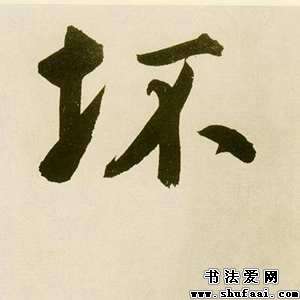 坏
书法爱网
www.shufaai.com